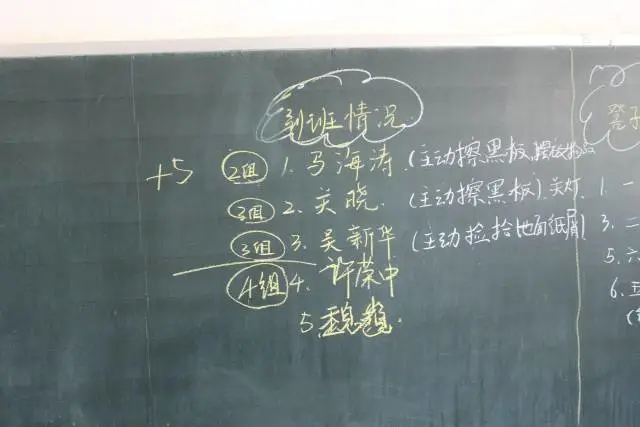 到班情况
+5 2组 1. 马海涛 (主动擦黑板,摆放物品
3组 2. 关晓. (主动擦黑板).关灯
3组 3. 吴新华 (主动捡拾地面纸屑)
4组 4. 许荣中
5.
1. 一
3. 二
5. 六
6. 五